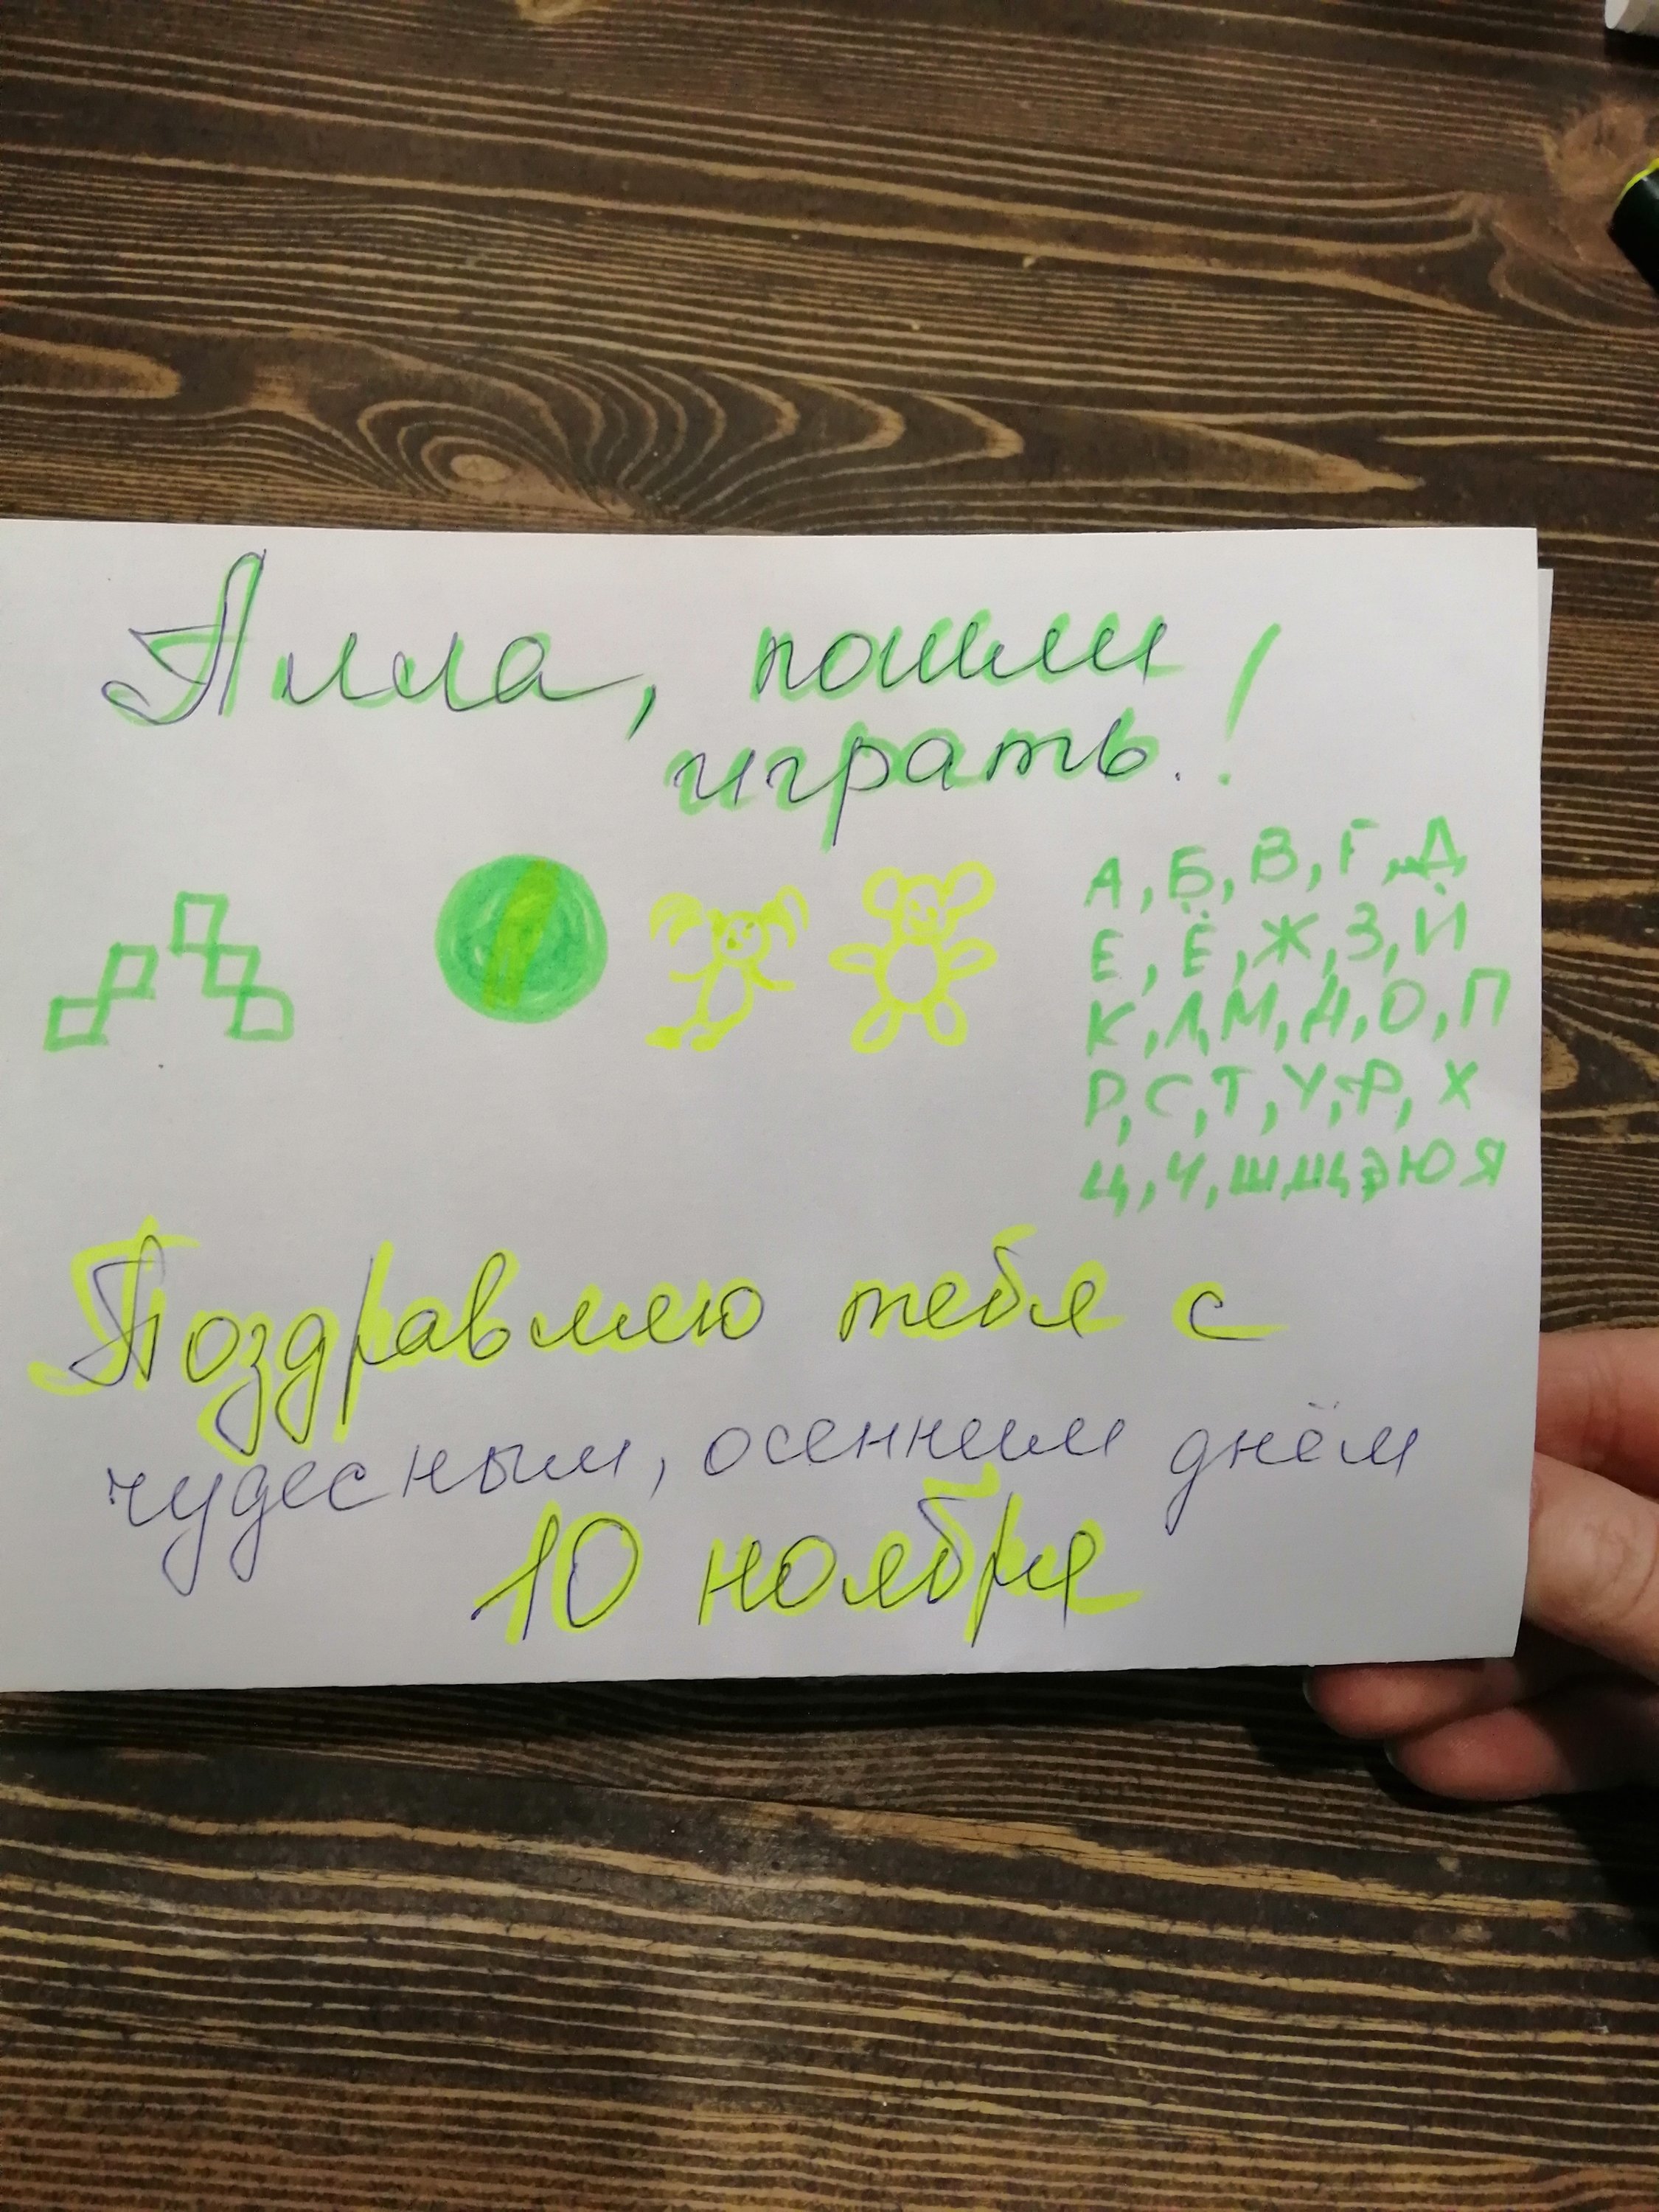 Алла, пошли
играть!
А, Б, В, Г, Д
Е, Ё, Ж, З, Й
К, Л, М, Н, О, П
Р, С, Т, У, Ф, Х
Ц, Ч, Ш, Щ, Э Ю Я
Поздравляю тебя с
чудесным, осенним днём
10 ноября